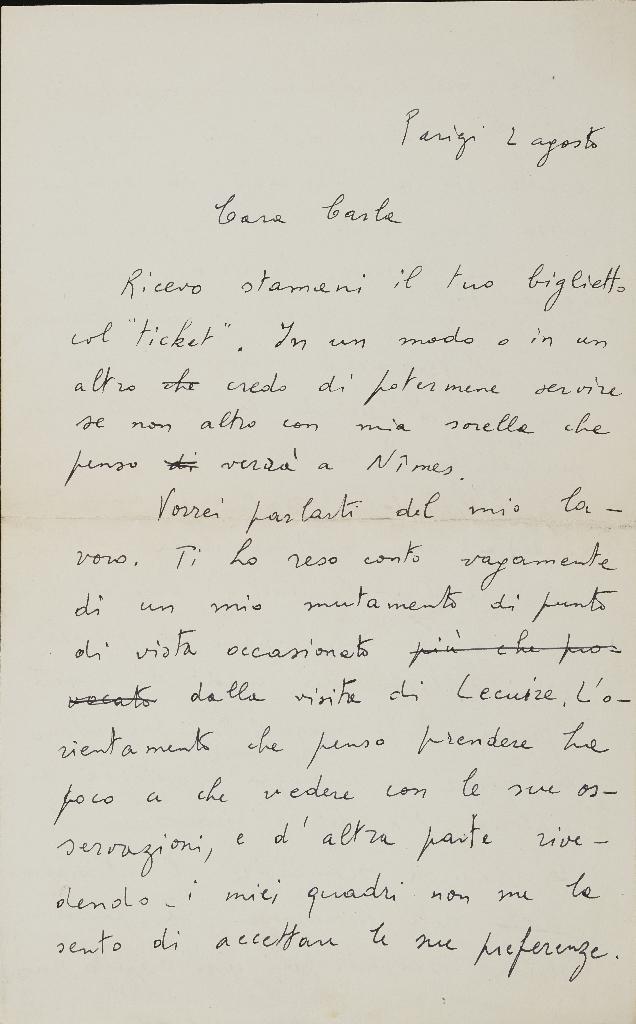 Parigi 2 agosto
Cara Carla
Ricevo stamani il tuo biglietto
col "ticket". In un modo o in un
altro che credo di potermene servire
se non altro con mia sorella che
penso di verrà a Nîmes.
Vorrei parlarti del mio la-
voro. Ti ho reso conto vagamente
di un mio mutamento di punto
di vista occasionato più che pro-
vocato dalla visita di Lecuire. L'o-
rientamento che penso prendere ha
poco a che vedere con le sue os-
servazioni, e d'altra parte rive-
dendo i miei quadri non me la
sento di accettare le sue preferenze.